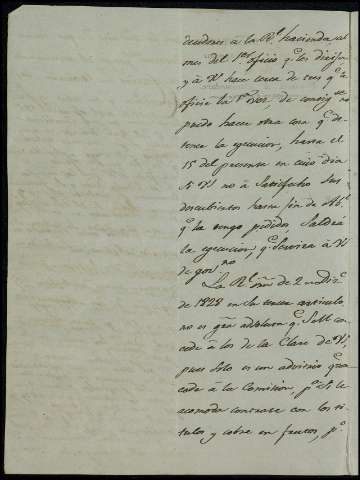 deudores à la Rl hacienda, al
mes del 1er oficio qe les dirijí
y à V. hace cerca de tres qe le
oficié la 1a vez, de consigte no
puedo hacer otra cosa qe de-
tener la egecucion, hasta el
15 del presente en cuio dia
si V. no à satisfecho sus
descubiertos hasta fin de Abl
qe le tengo pedidos, saldrá
la egecucion, qe servirá à V.
de govno
La Rl orn de 2 de Dize
de 1828 en su tercer articulo
no es gra absoluta qe S.M. con-
cede à los de la Clase de V.,
pues solo es un advitrio que
cede à la Comision, pa si le
acomoda contrate con los ti-
tulos y cobre en frutos, pa